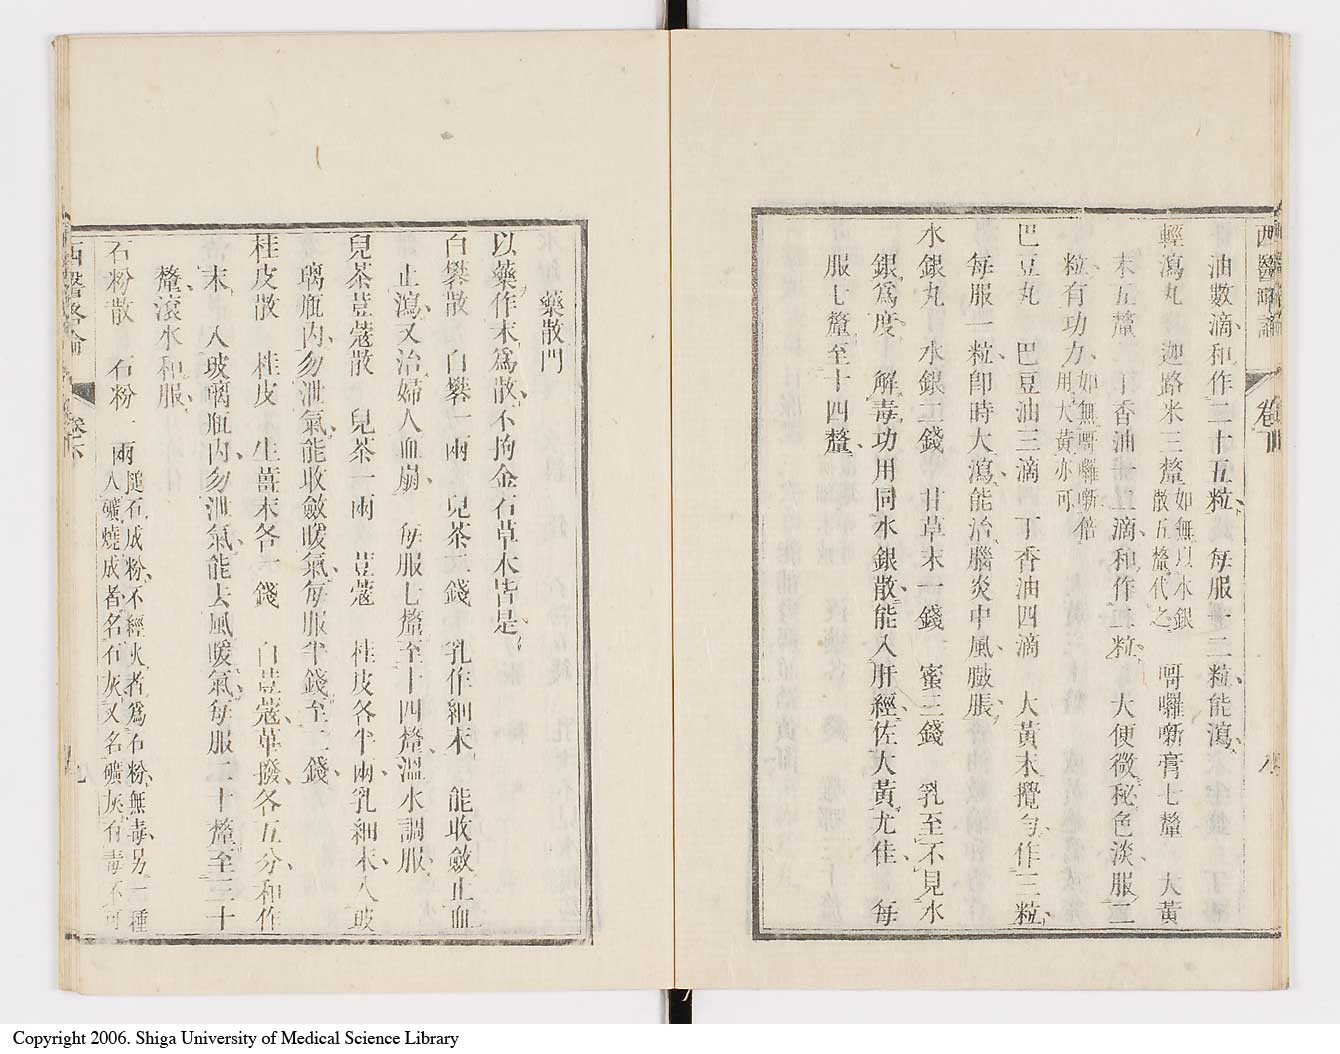 西醫略論
卷下
油數滴和作二十五粒、每服一二粒、能瀉、
輕瀉丸 迦路米三釐 如無以水銀散五釐代之 哥囉噺膏七釐 大黃
末五釐 丁香油一二滴、和作二粒、 大便微秘色淡、服二
粒有功力、 如無哥囉噺、倍用大黃亦可、
巴豆丸 巴豆油三滴 丁香油四滴 大黃末攪勻作三粒、
每服一粒、卽時大瀉、能治腦炎中風臌脹、
水銀丸 水銀二錢 甘草末一錢 蜜三錢 乳至不見水
銀爲度、 解毒功用同水銀散、能入肝經、佐大黃尤佳、 每
服七釐至十四釐、
藥散門
以藥作末爲散、不拘金石草木皆是、
白礬散 白礬一兩 兒茶二錢 乳作細末 能收斂止血
止瀉、又治婦人血崩、 每服七釐至十四釐、溫水調服、
兒茶荳蔻散 兒茶一兩 荳蔻 桂皮各半兩、乳細末、入玻
璃瓶內、勿泄氣、能收斂暖氣、每服半錢至一錢、
桂皮散 桂皮 生薑末各一錢 白荳蔻、革撥、各五分、和作
末、 入玻璃瓶內、勿泄氣、能去風暖氣、每服二十釐至三十
釐、滾水和服、
石粉散 石粉一兩 搥石成粉、不經火者爲石粉、無毒、另一種入礦燒成者名石灰、又名礦灰、有毒不可
西醫略論
卷下
九